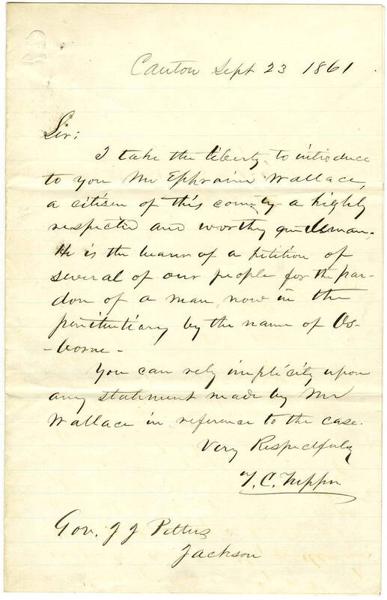 Canton Sept 23 1861
Sir:
I take the liberty to introduce
to you Mr Ephraim Wallace,
a citizen of this county a highly
respected and worthy gentleman.
He is the bearer of a petition of
several of our people for the par-
don of a man now in the
penitentiary by the name of Os-
-borne -
You can rely implicitly upon
any statement made by Mr
Wallace in reference to the case.
Very Respectfully
T. C. Tupper
Gov. J J Pettus
Jackson